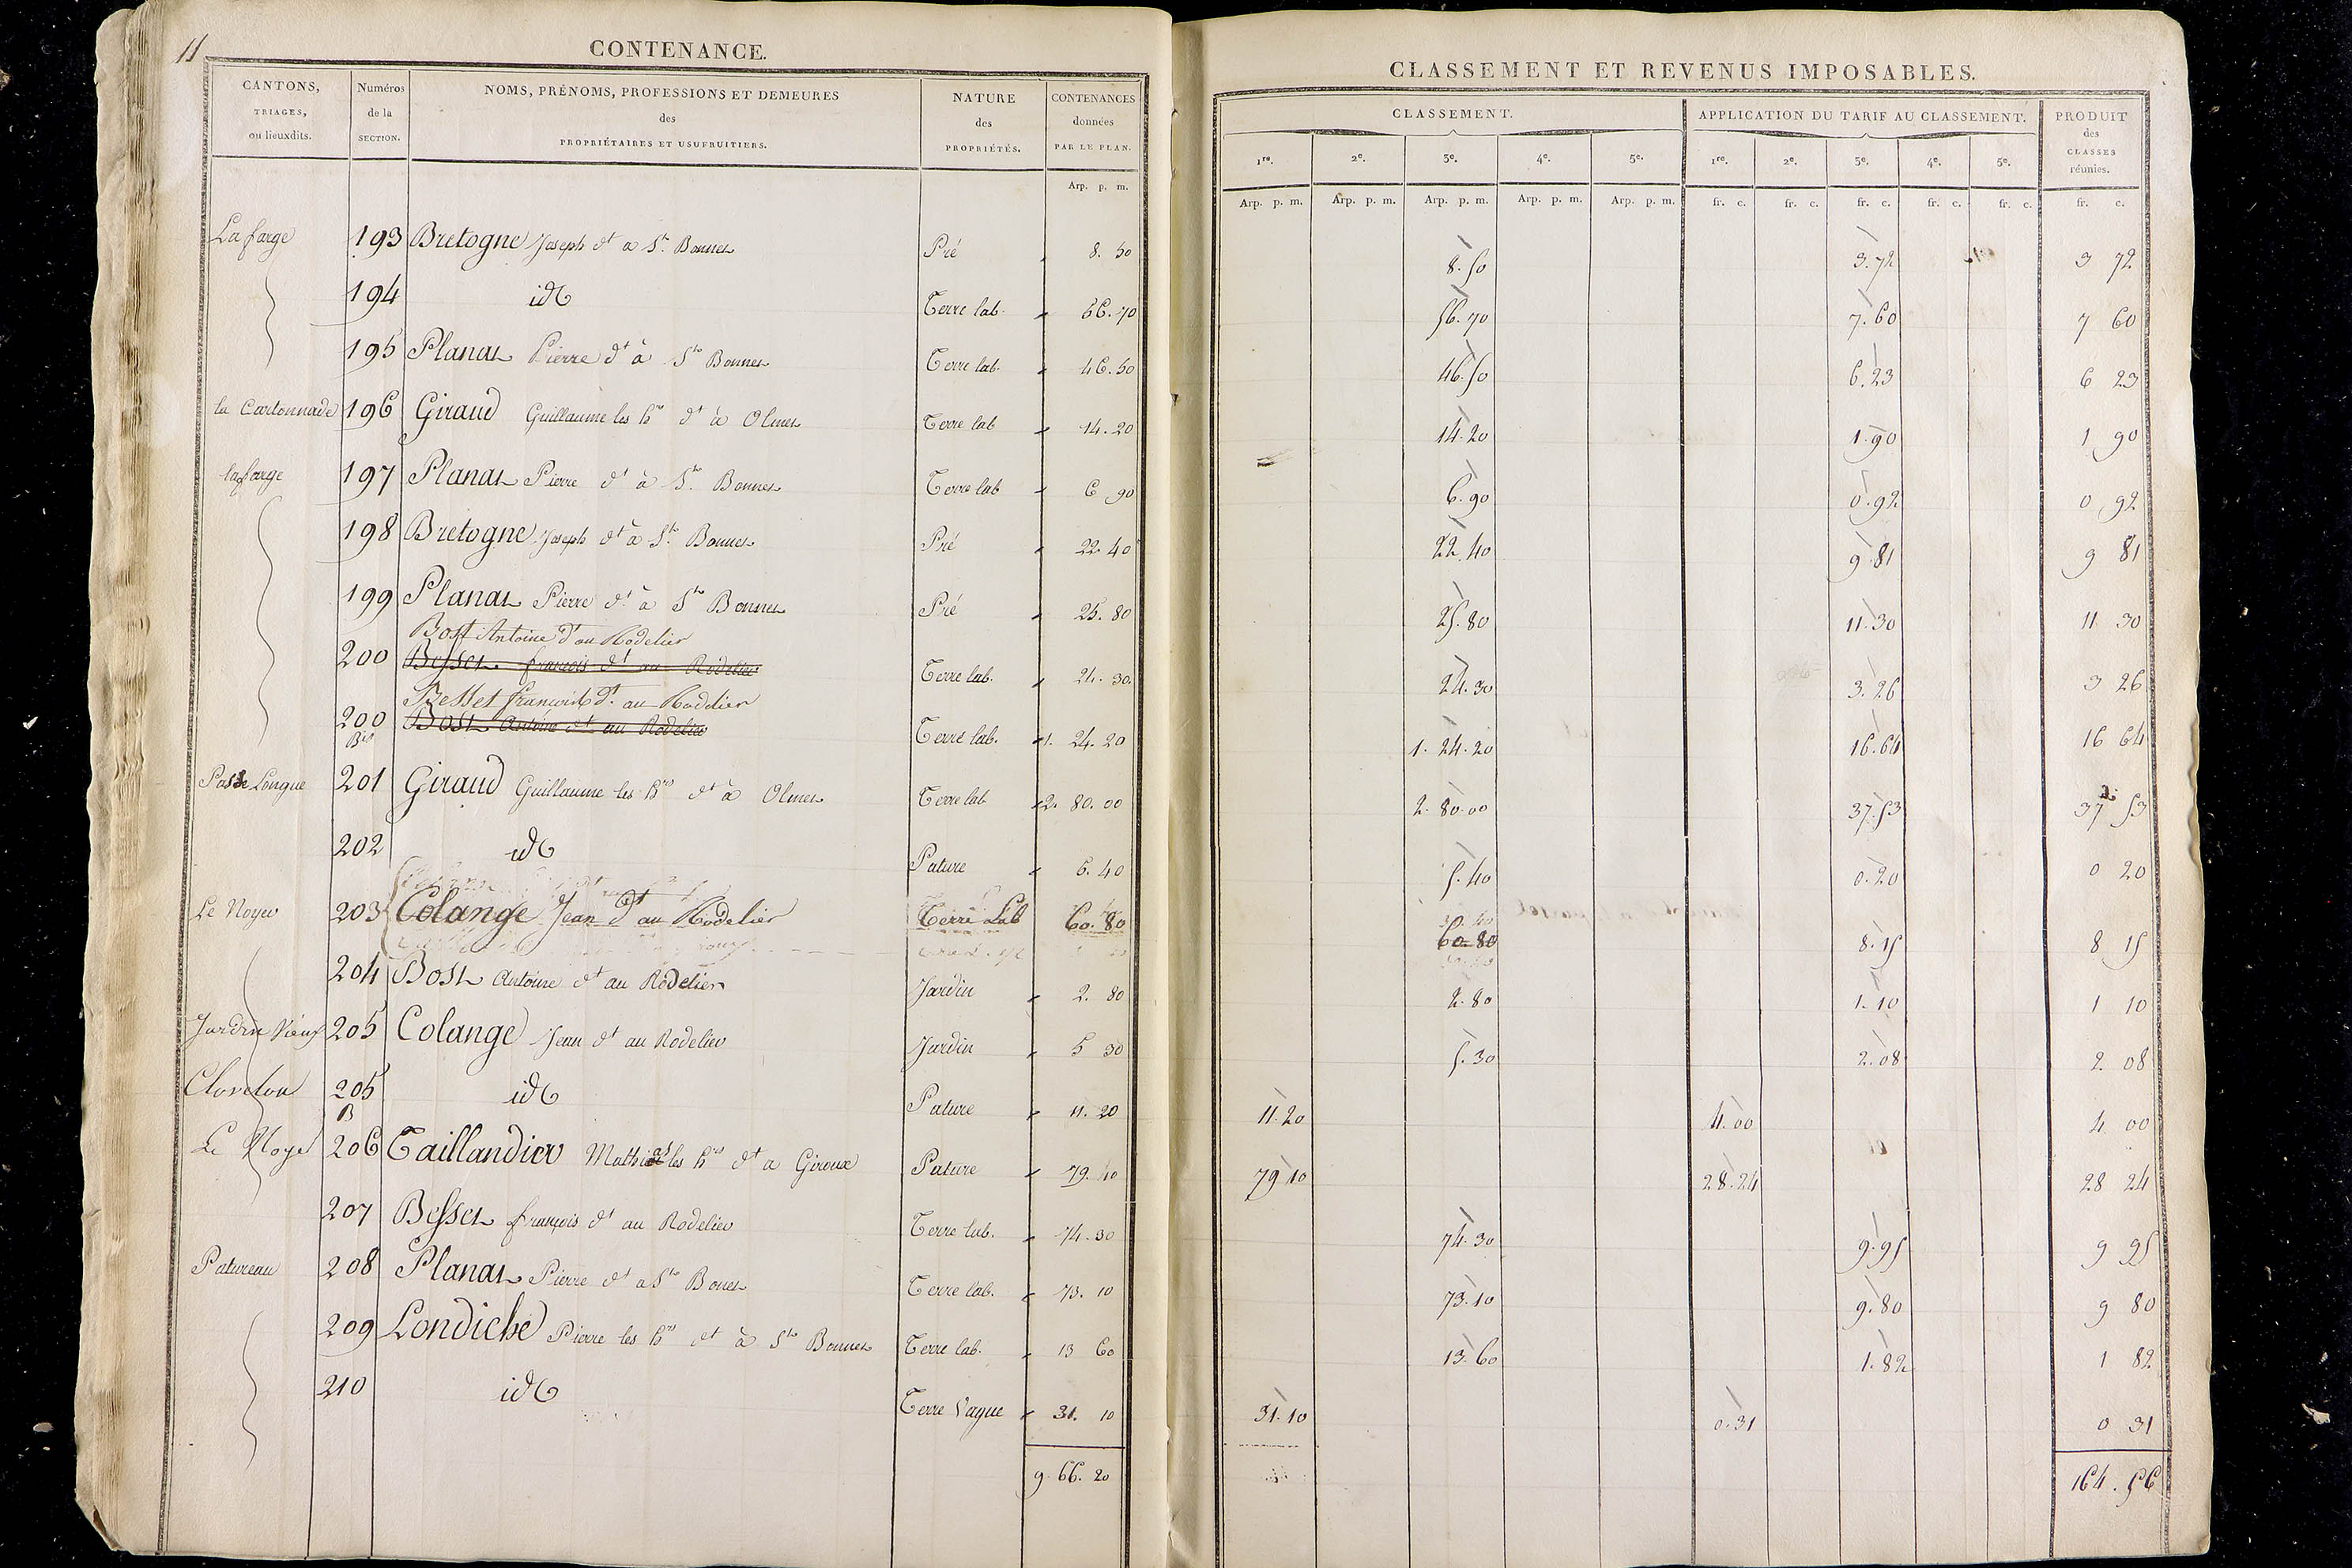 11
CONTENANCE.
CANTONS, TRIAGES, ou lieuxdits. | Numéros de la SECTION. | NOMS, PRÉNOMS, PROFESSIONS ET DEMEURES des PROPRIÉTAIRES ET USUFRUITIERS. | NATURE des PROPRIÉTÉS. | CONTENANCES données PAR LE PLAN.
Arp. p. m.
CLASSEMENT ET REVENUS IMPOSABLES.
CLASSEMENT. | APPLICATION DU TARIF AU CLASSEMENT. | PRODUIT des CLASSES réunies.
1re. 2e. 3e. 4e. 5e. | 1re. 2e. 3e. 4e. 5e.
Arp. p. m. Arp. p. m. Arp. p. m. Arp. p. m. Arp. p. m. | fr. c. fr. c. fr. c. fr. c. fr. c. | fr. c.
La farge 193 Bretogne Joseph dt a St. Bonnet Pré 8. 50 | 8.50 | 3.72 | 3 72
194 id Terre lab. 56.70 | 56.70 | 7.60 | 7 60
195 Planat Pierre dt à St Bonnet Terre lab. 46.50 | 46.50 | 6.23 | 6 23
la Cartonnade 196 Giraud Guillaume les hrs dt à Olmet Terre lab 14.20 | 14.20 | 1.90 | 1 90
lafarge 197 Planat Pierre dt à St. Bonnet Terre lab 6 90 | 6.90 | 0.92 | 0 92
198 Bretogne Joseph dt à St. Bonnet Pré 22.40 | 22.40 | 9.81 | 9 81
199 Planat Pierre dt à St Bonnet Pré 25.80 | 25.80 | 11.30 | 11 30
Bost Antoine dt au Rodelier
200 Besset françois dt au Rodelier Terre lab. 24.30 | 24.30 | 3.26 | 3 26
Besset françois dt. au Rodelier
200 Bis Bost Antoine dt au Rodelier Terre lab. 1. 24.20 | 1.24.20 | 16.64 | 16 64
Passe Longue 201 Giraud Guillaume les hrs dt à Olmet Terre lab 2. 80.00 | 2.80.00 | 37.53 | 37 53
202 id Pature 5.40 | 5.40 | 0.20 | 0 20
Le Noyer 203 Colange Jean dt au Rodelier Terre Lab 60.80 | 60.80 | 8.15 | 8 15
204 Bost Antoine dt au Rodelier Jardin 2. 80 | 2.80 | 1.10 | 1 10
Jardin Vieux 205 Colange Jean dt au Rodelier Jardin 5 30 | 5.30 | 2.08 | 2. 08
205 B id Pature 11. 20 | 11.20 | 4.00 | 4 00
Le Noyé 206 Taillandier Mathieu les hrs dt a Giroux Pature 79.10 | 79.10 | 28.24 | 28 24
207 Besset françois dt au Rodelier Terre lab. 74.30 | 74.30 | 9.95 | 9 95
Patureau 208 Planat Pierre dt a St Bonet Terre lab. 73. 10 | 73.10 | 9.80 | 9 80
209 Londiche Pierre les hrs dt à St Bonnet Terre lab. 13 60 | 13.60 | 1.82 | 1 82
210 id Terre Vague 31. 10 | 31.10 | 0.31 | 0 31
9.66.20
164.56